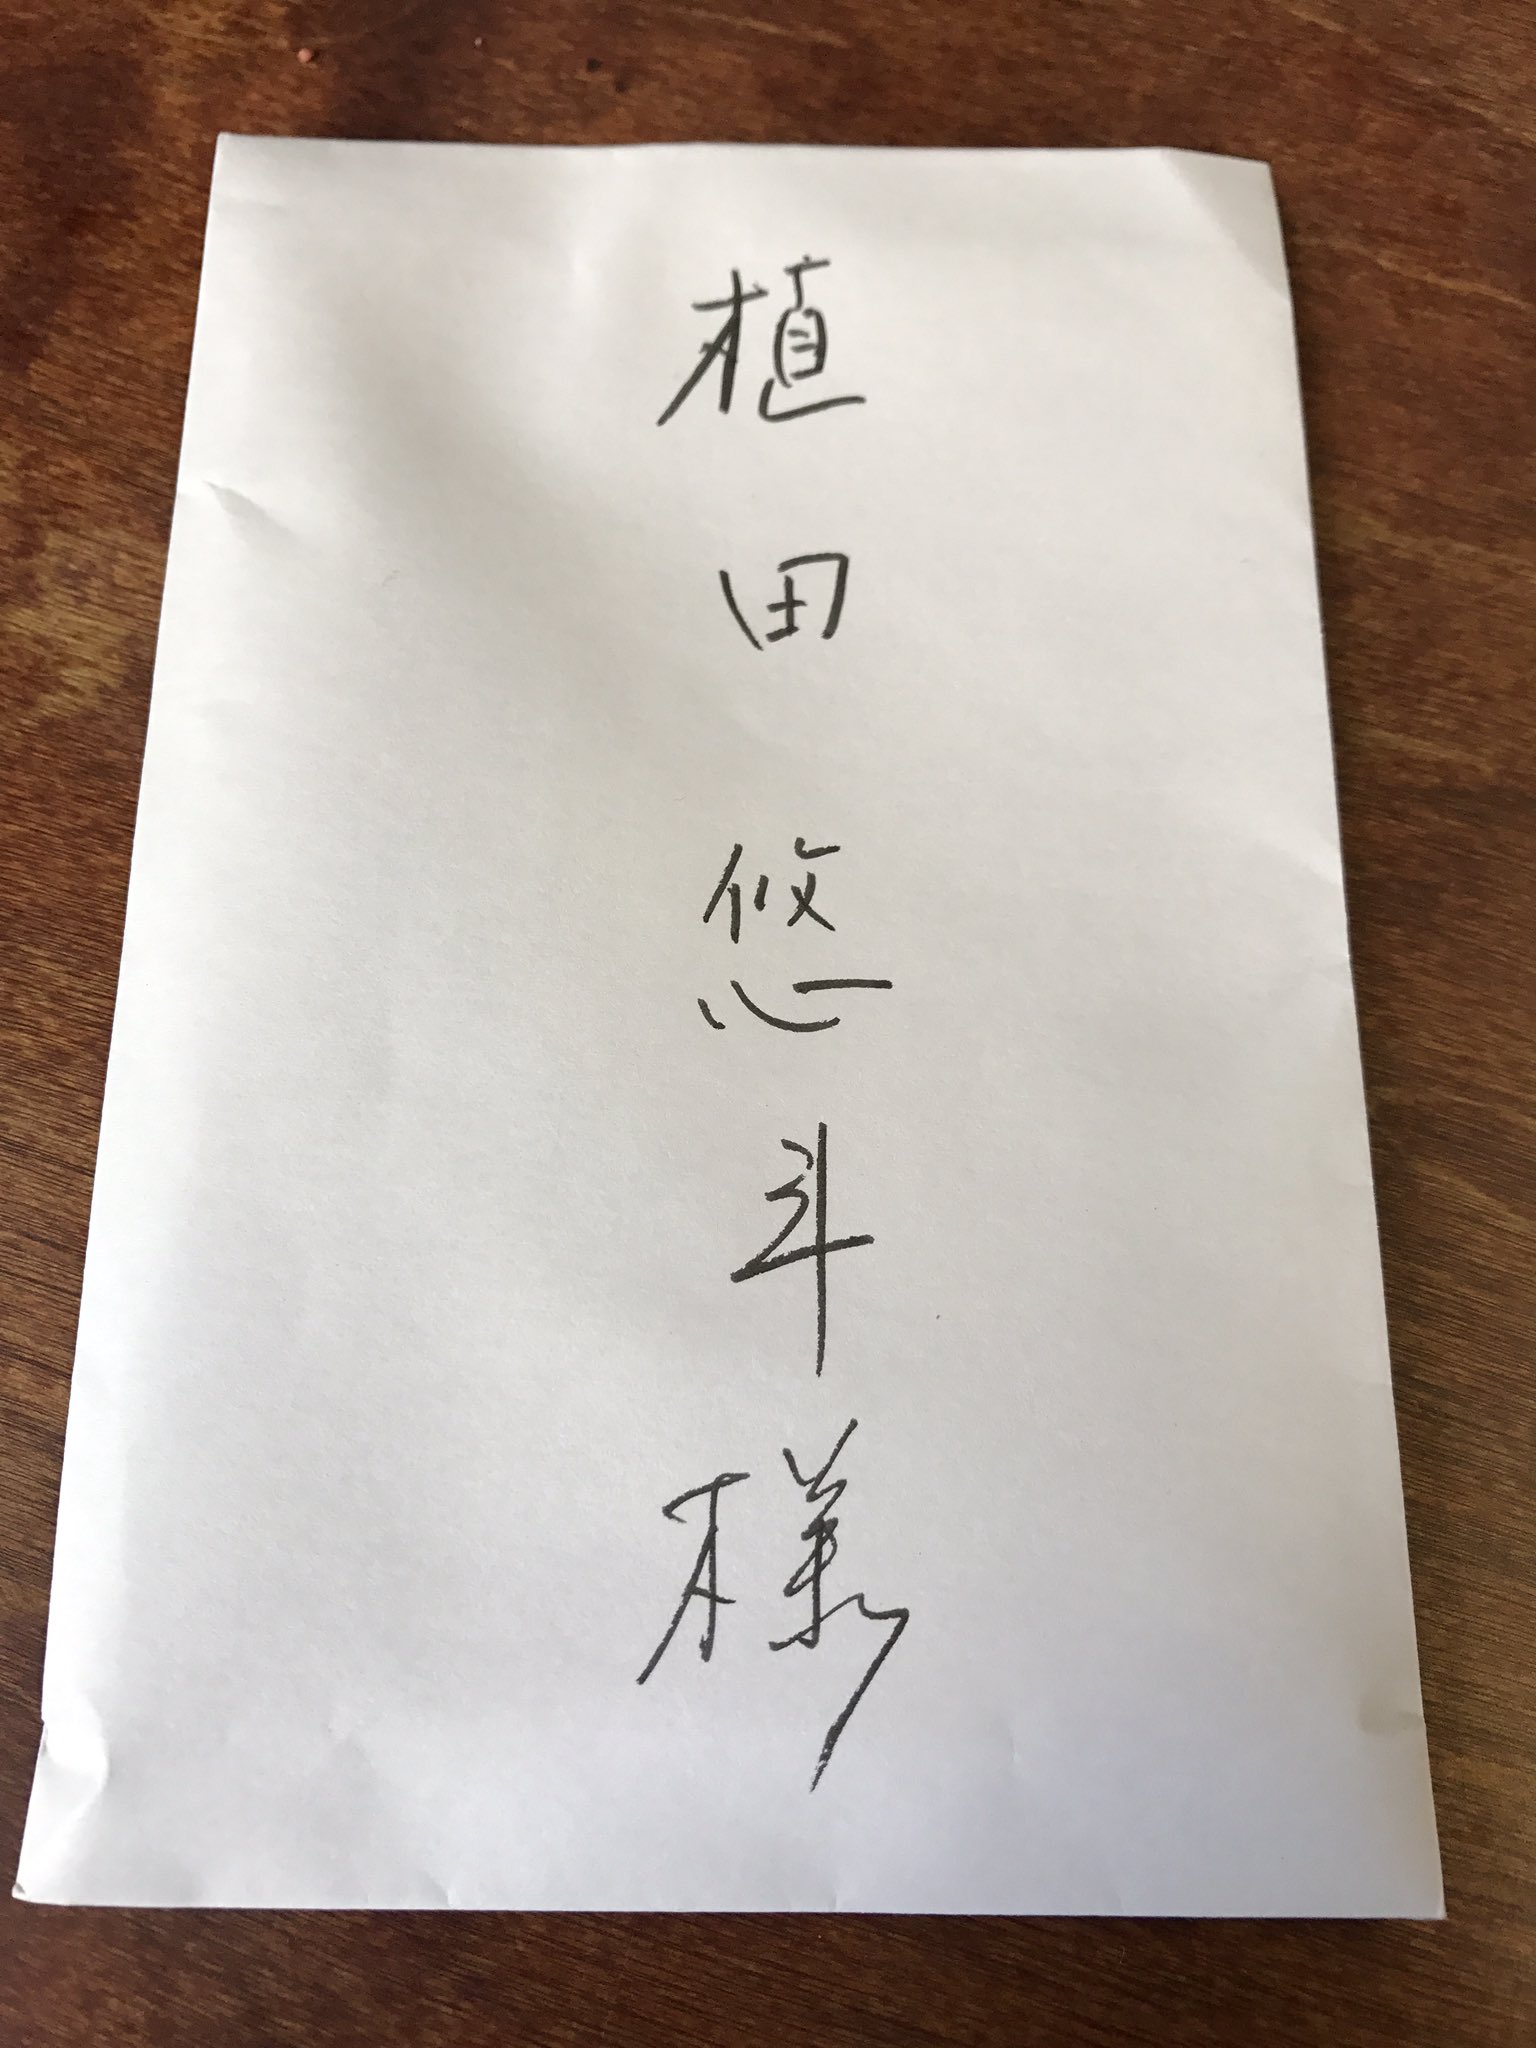 植田悠斗様